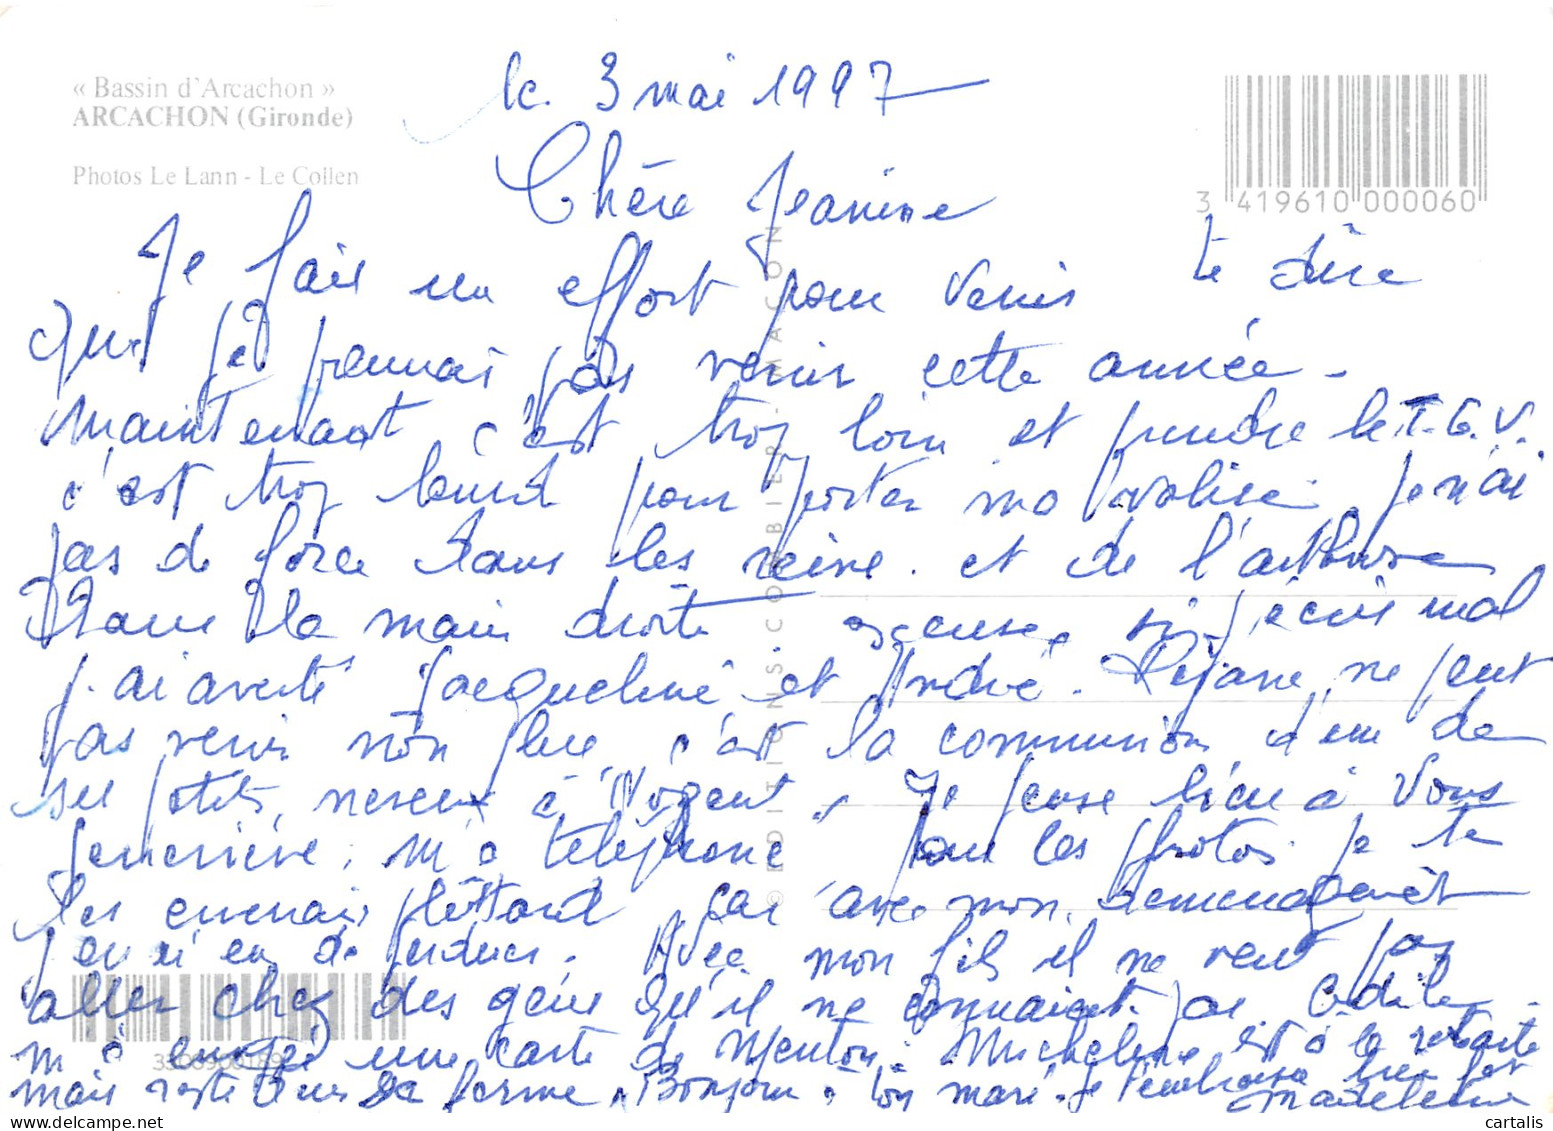 « Bassin d'Arcachon »
ARCACHON (Gironde)
Photos Le Lann - Le Collen
3 419610 000060
le 3 mai 1997
Chère Jeanine
Je fais un effort pour venir te dire
que je pourrais pas venir cette année -
Maintenant c'est trop loin et prendre le T.G.V.
c'est trop lourd pour porter ma valise. Je n'ai
pas de force dans les reins. et de l'arthrose
dans la main droite excuse si j'écris mal
j'ai averti Jacqueline et André. Réjane ne peut
pas venir non plus, c'est la communion d'un de
ses petits neveux à Nogent. Je pense bien à Vous
Geneviève m'a téléphoné pour les photos. je te
les enverrai plus tard car avec mon demenagement
j'en ai eu de perdues. Avec mon fils il ne veut pas
aller chez des gens qu'il ne connaient pas Odile
m'a envoyé une carte de Menton. Micheline est à la retraite
mais reste dans sa ferme. Bonjour à ton mari. Je t'embrasse bien fort
Madeleine
© EDITIONS COMBIER MACON